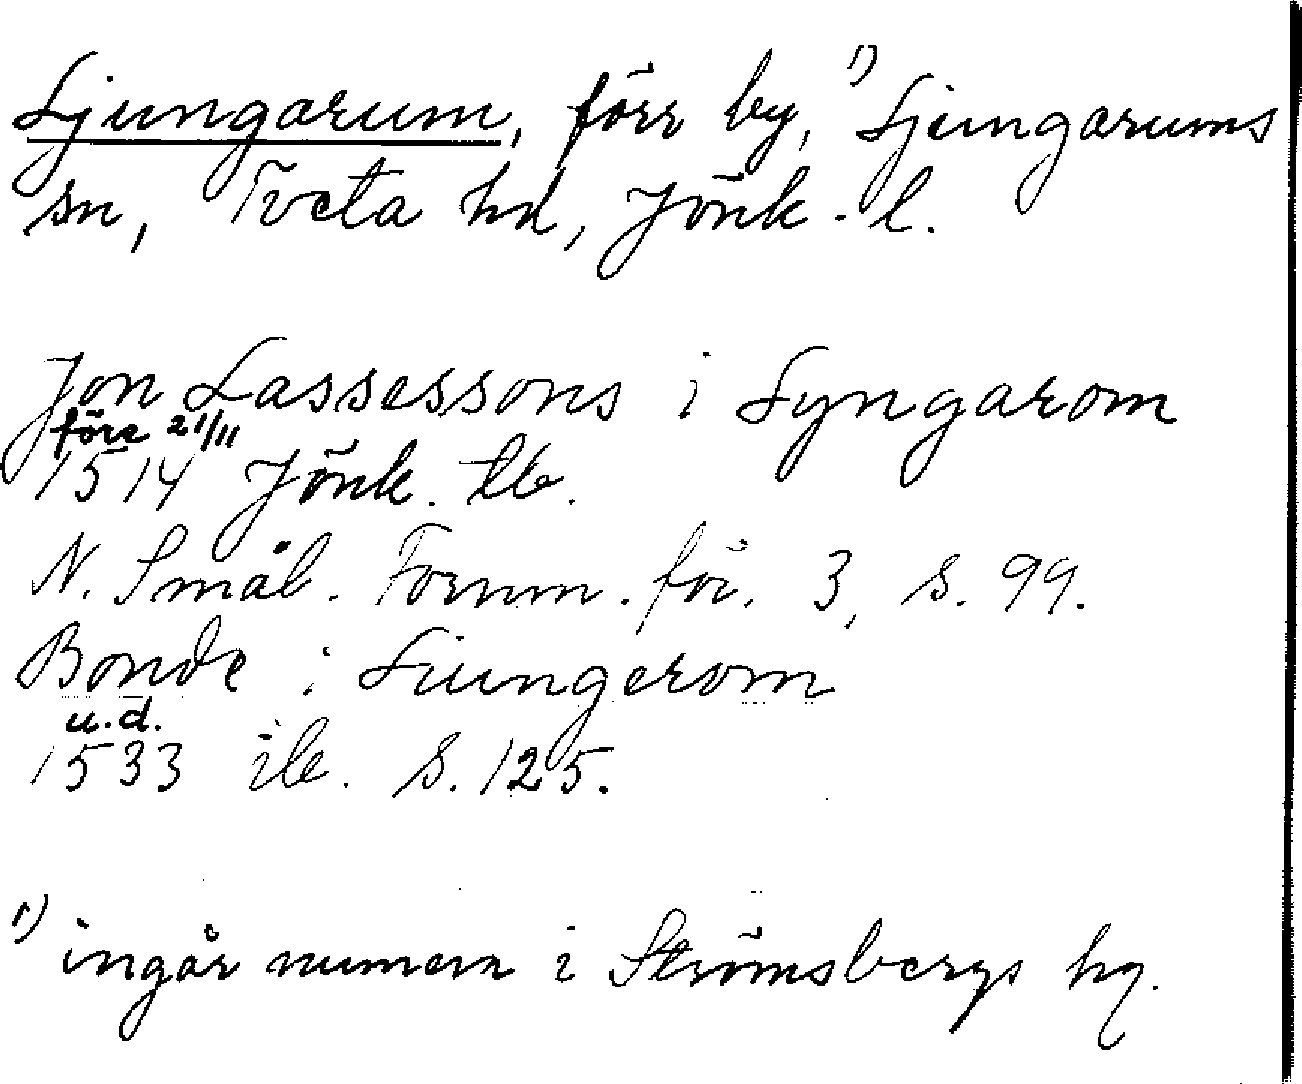 Ljungarum, förr by, 1) Ljungarums
sn, Tveta hd, Jönk. l.
Jon Lassessons i Lyngarom
före 21/11
1514 Jönk. tb.
N. Smål. Fornm. för. 3, s. 99.
Bonde i Liungerom
u.d.
1533 ib. S. 125.
1) ingår numera i Strömsbergs hg.